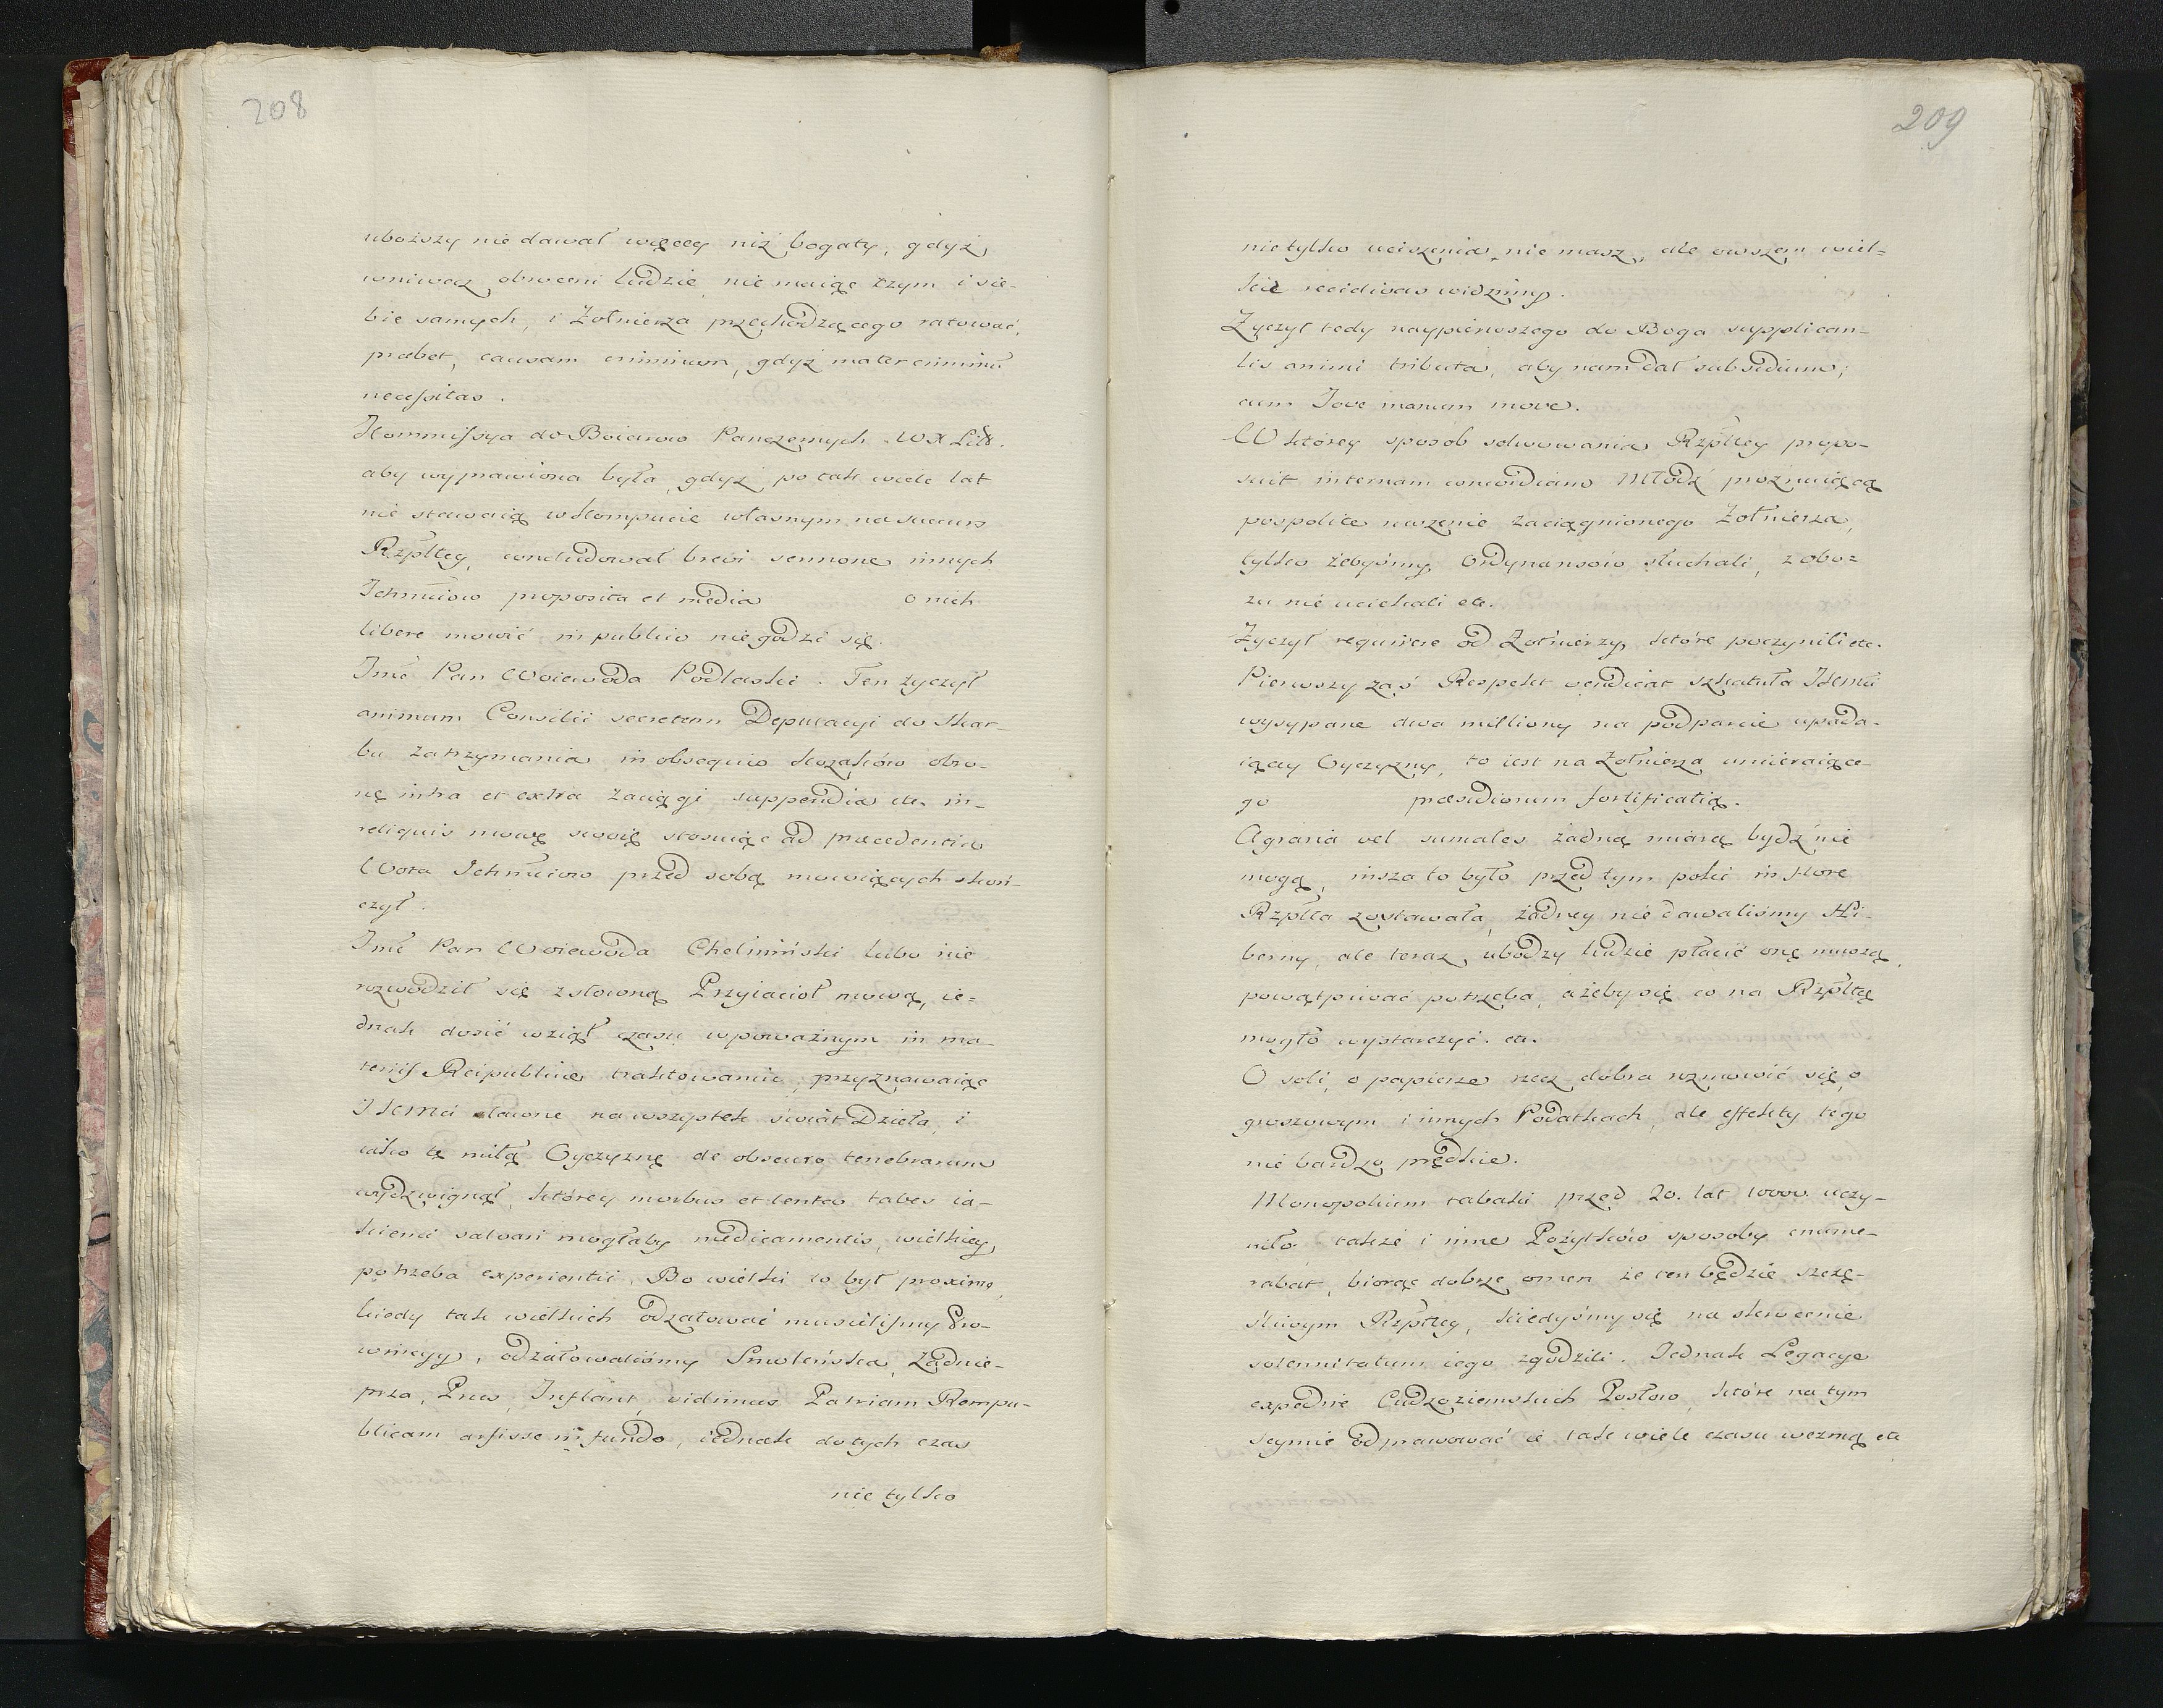 208
uboższy nie dawał więcey niż bogaty, gdyż
wniwecz obroceni ludzie nie maiąc czym i sie-
bie samych, i Żołnierza przechodzącego ratować,
præbet, causam criminum, gdyż mater criminũ
necessitas.
Kommissya do Boiarow Pancernych WX Litt.
aby wyprawiona była, gdyż po tak wiele lat
nie stawaią w Kompucie własnym na succurs
Rzpltey, concludował brevi sermone innych
Ichmciow proposita et media o nich
libere mowić in publico nie godzi się.
Jmć Pan Woiewoda Podlaski. Ten zyczył
animum Consilii secretem Deputacyi do Skar-
bu zatrzymania in obsequio Kozaków obro-
nę intra et extra Zaciągi suppendia etc. in-
reliquis mowę swoię stosuiąc ad præcedentia
Wota Ichmciow przed sobą mowiących skoń-
czył.
Jmć Pan Woiewoda Chełmiński lubo nie
rozwodził się z słowną Przyiacioł mową, ie-
dnak dosić wziął czasu w poważnym in ma-
teriis Reipublicæ traktowaniu, przyznawaiąc
JKMci sławne na wszystek świat Dzieła, i
iako tę miłą Oyczyznę de obscuro tenebrarum
wydzwignął, którey morbus et lenta tabes ia-
kiemi salvari mogłaby medicamentis, wielkiey
potrzeba experientii. Bo wielki to był proxime,
kiedy tak wielkich odżałować musielismy Pro-
wincyy, odżałowaliśmy Smoleńska, Zadnie-
prza, Prus, Inflant, vidimus Patriam Rempu-
blicam arsisse in fundo, iednak do tych czas
nie tylko
209
nie tylko uciszenia nie masz, ale owszem wiel-
kie recidivas widziemy.
Zyczył tedy naypierwszego do Boga supplican-
tis animi tributa, aby nam dał subsidium;
cum Jove manum move.
W ktorey sposob salwowania Rzpltey propo-
suit internam concordiam Młodź proznuiącą
pospolite ruszenie zaciągnionego Żołnierza,
tylko żebyśmy Ordynansów słuchali, z obo-
zu nie uciekali etc.
Zyczył requirere od Żołnierzy, które poczynili etc.
Pierwszy zaś Respekt vendicat szkatuła JKMći
wysypane dwa milliony na podparcie upada-
iącey Oyczyzny, to iest na Żołnierza umieraiące-
go præsidiorum fortificatią.
Agraria vel fumales żadną miarą bydź nie
mogą, insza to było przed tym poki in flore
Rzplta zostawała, żadney nie dawaliśmy Hi-
berny, ale teraz ubodzy ludzie płacić onę muszą,
powątpiwać potrzeba, ażeby się co na Rzpltę
mogło wystarczyć. etc.
O soli, o papierze rzecz dobra rozmowić się, o
groszowym i innych Podatkach, ale effekty tego
nie bardzo prędkie.
Monopolium tabaki przed 20. lat 10000. uczy-
niło, także i inne Pożytków sposoby enume-
rabat, biorąc dobrze omen że ten będzie szczę-
śliwym Rzpltey, kiedyśmy się na skrocenie
solennitatum iego zgodzili. Jednak Legacye
expednie Cudzoziemskich Posłow, które na tym
seymie odprawować się tak wiele czasu wezmą etc